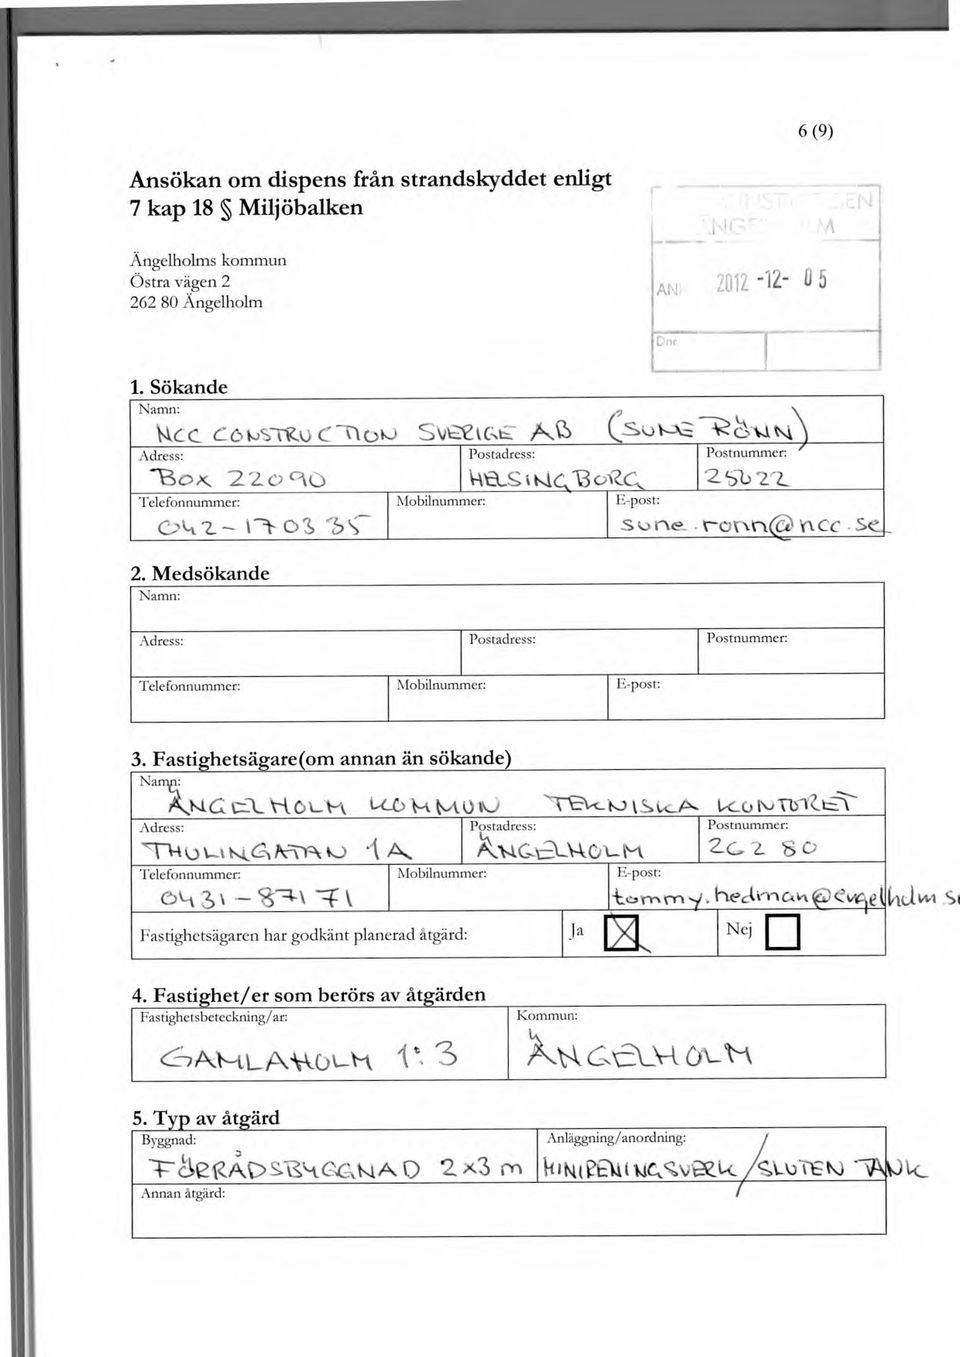 6 (9)
Ansökan om dispens från strandskyddet enligt
7 kap 18 § Miljöbalken
Ängelholms kommun
Östra vägen 2
262 80 Ängelholm
2012 -12- 05
Dnr
1. Sökande
Namn:
NCC CONSTRUCTION SVERIGE AB (SUNE RÖNN)
Adress: Postadress: Postnummer:
BOX 22090 HELSINGBORG 25022
Telefonnummer: Mobilnummer: E-post:
042-170335 sune.ronn@ncc.se
2. Medsökande
Namn:
Adress: Postadress: Postnummer:
Telefonnummer: Mobilnummer: E-post:
3. Fastighetsägare(om annan än sökande)
Namn:
ÄNGELHOLM KOMMUN TEKNISKA KONTORET
Adress: Postadress: Postnummer:
THULINGATAN 1A ÄNGELHOLM 262 80
Telefonnummer: Mobilnummer: E-post:
0431-87171 tommy.hedman@engelholm.se
Fastighetsägaren har godkänt planerad åtgärd: Ja Nej
4. Fastighet/er som berörs av åtgärden
Fastighetsbeteckning/ar: Kommun:
GAMLAHOLM 1:3 ÄNGELHOLM
5. Typ av åtgärd
Byggnad: Anläggning/anordning:
FÖRRÅDSBYGGNAD 2x3 m MINIRENINGSVERK/SLUTEN TANK
Annan åtgärd: